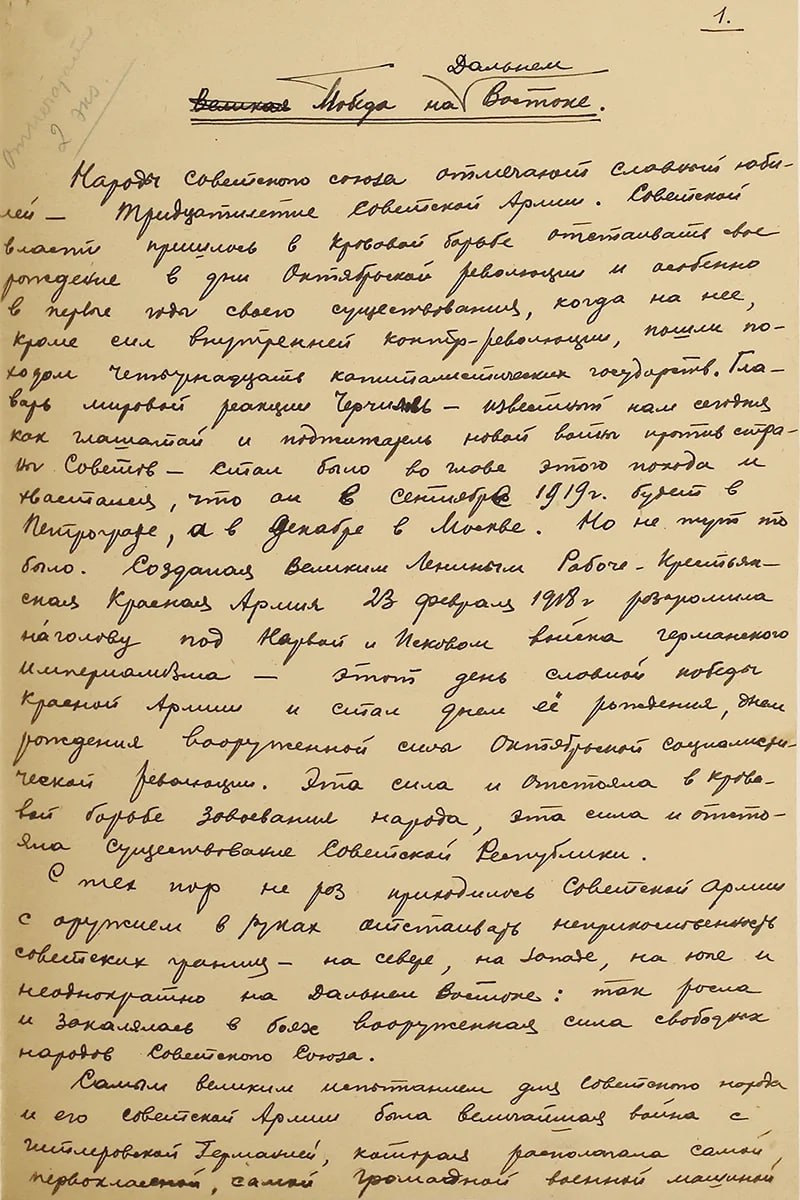 1.
Отпечатать
2 экз.
Дальнем
Великая Победа на Востоке.
Народы Советского союза отмечают славный юби-
лей — тридцатилетие Советской Армии. Советской
власти пришлось в кровавой борьбе отстаивать свое
рождение в дни Октябрьской революции и особенно
в первые годы своего существования, когда на нее,
кроме сил внутренней контр-революции, пошли по-
ходом четырнадцать капиталистических государств. Гла-
варь мировой реакции Черчилль — известный нам сегодня
как глашатай и поджигатель новой войны против стра-
ны Советов — стал было во главе этого похода и
хвастался, что он в сентябре 1919 г. будет в
Петрограде, а в декабре в Москве. Но не тут то
было. Созданая Великим Лениным Рабоче-Крестьян-
ская Красная Армия 23 февраля 1918 г розгромила
наголову под Нарвой и Псковом войска германского
империализма — этот день славной победы
Красной Армии и стал днем её рождения, днем
рождения вооруженной силы Октябрьской социалисти-
ческой революции. Эта сила и отстояла в крова-
вой борьбе завоевания народа, эта сила и отсто-
яла существование Советской Республики.
С тех пор не роз приходилось Советской Армии
с оружием в руках отстаивать неприкосновенность
советских границ — на севере, на западе, на юге и
неоднократно на Дальнем Востоке: так росла
и закалялась в боях вооруженная сила свободных
народов Советского Союза.
Самым великим испытанием для Советского народа
и его Советской Армии была величайшая война с
гитлеровской Германией, которая располагала самой
первоклассной, самой громадной военной машиной